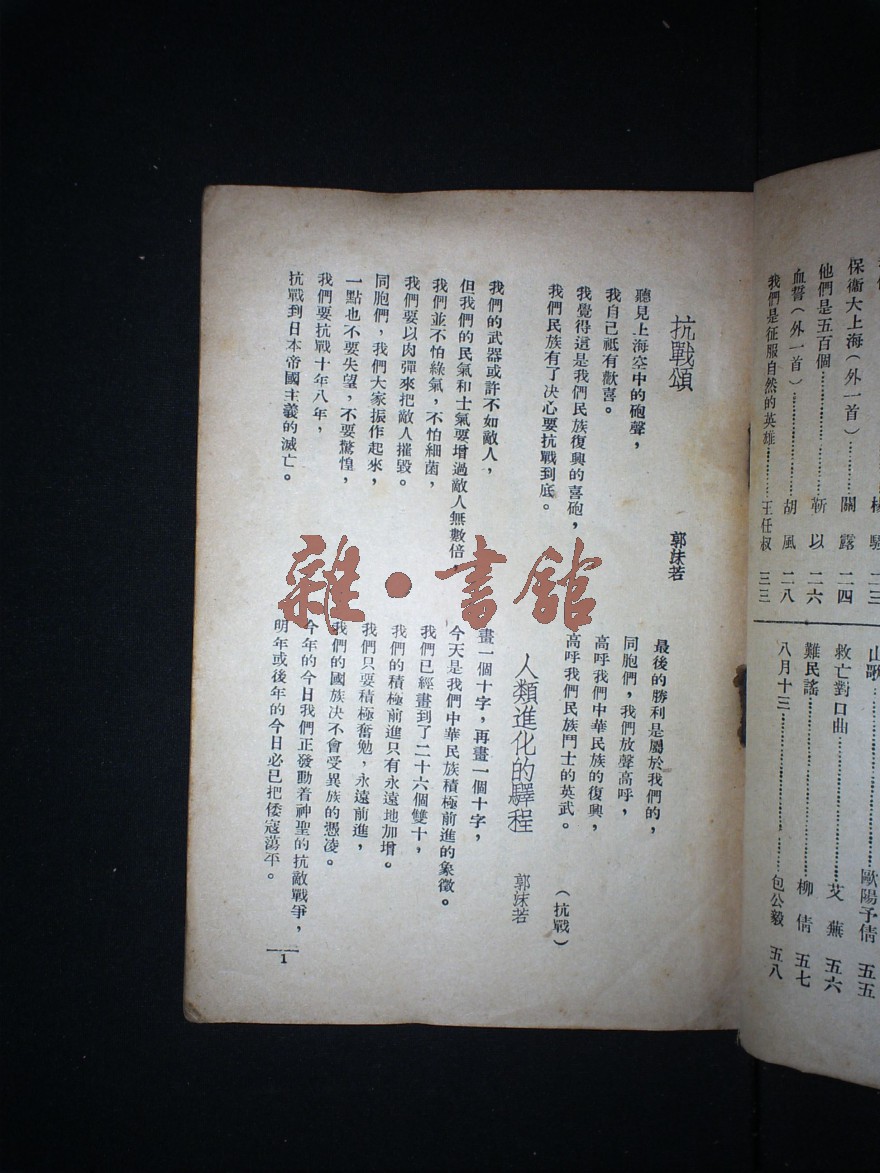 保衛大上海(外一首)………關 露 二四
他們是五百個………靳 以 二六
血誓(外一首)………胡 風 二八
我們是征服自然的英雄………王任叔 三三
山歌………歐陽予倩 五五
救亡對口曲………艾 蕪 五六
難民謠………柳 倩 五七
八月十三………包公毅 五八
抗戰頌
郭沫若
聽見上海空中的砲聲,
我自己祇有歡喜。
我覺得這是我們民族復興的喜砲,
我們民族有了決心要抗戰到底。
我們的武器或許不如敵人,
但我們的民氣和士氣要增過敵人無數倍,
我們並不怕綠氣,不怕細菌,
我們要以肉彈來把敵人摧毀。
同胞們,我們大家振作起來,
一點也不要失望,不要驚惶,
我們要抗戰十年八年,
抗戰到日本帝國主義的滅亡。
最後的勝利是屬於我們的,
同胞們,我們放聲高呼,
高呼我們中華民族的復興,
高呼我們民族鬥士的英武。
(抗戰)
人類進化的驛程
郭沫若
畫一個十字,再畫一個十字,
今天是我們中華民族積極前進的象徵。
我們已經畫到了二十六個雙十,
我們的積極前進只有永遠地加增。
我們只要積極奮勉,永遠前進,
我們的國族決不會受異族的憑凌。
今年的今日我們正發動着神聖的抗敵戰爭,
明年或後年的今日必已把倭寇蕩平。
1
雜·書館